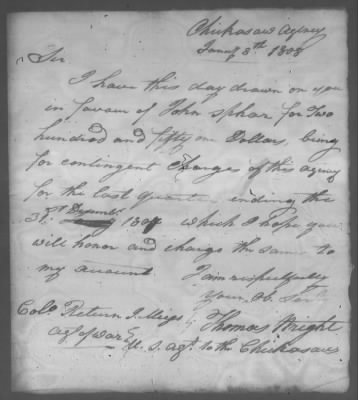 Chickasaw Agency
Jany 8th 1808
Sir
I have this day drawn on you
in favour of John Sphar for Two
hundred and fifty one Dollars, being
for contingent Charges of this agency
for the last quarter ending the
31st Decembr. 1807 which I hope you
will honor and charge the same to
my account I am respectfully
Your Ob. Servt
Thomas Wright
U. S. agt. to the Chickasaws
Colo Return J. Meigs
agt of war